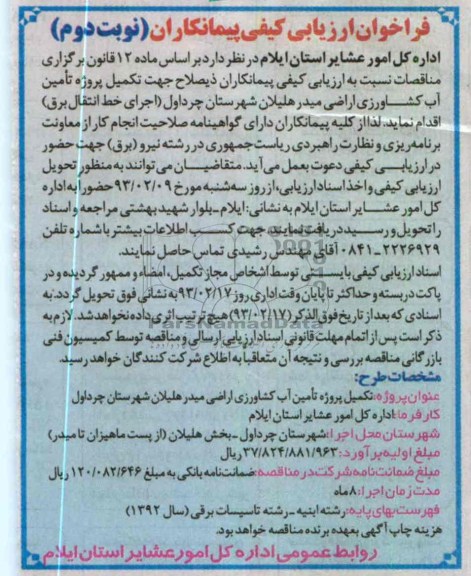 فراخوان ارزیابی کیفی پیمانکاران (نوبت دوم)
اداره کل امور عشایر استان ایلام در نظر دارد بر اساس ماده ۱۲ قانون برگزاری
مناقصات نسبت به ارزیابی کیفی پیمانکاران ذیصلاح جهت تکمیل پروژه تأمین
آب کشاورزی اراضی میدر هلیلان شهرستان چرداول (اجرای خط انتقال برق)
اقدام نماید. لذا از کلیه پیمانکاران دارای گواهینامه صلاحیت انجام کار از معاونت
برنامه ریزی و نظارت راهبردی ریاست جمهوری در رشته نیرو (برق) جهت حضور
در ارزیابی کیفی دعوت بعمل می آید. متقاضیان می توانند به منظور تحویل
ارزیابی کیفی و اخذ اسناد ارزیابی، از روز سه شنبه مورخ ۹۳/۰۲/۰۹ حضوراً به اداره
کل امور عشایر استان ایلام به نشانی: ایلام - بلوار شهید بهشتی مراجعه و اسناد
را تحویل و رسید دریافت نمایند. جهت کسب اطلاعات بیشتر با شماره تلفن
۲۲۲۶۹۲۹-۰۸۴۱ آقای مهندس رشیدی تماس حاصل نمایند.
اسناد ارزیابی کیفی بایستی توسط اشخاص مجاز تکمیل، امضاء و ممهور گردیده و در
پاکت دربسته و حداکثر تا پایان وقت اداری روز ۹۳/۰۲/۱۷ به نشانی فوق تحویل گردد. به
اسنادی که بعد از تاریخ فوق الذکر (۹۳/۰۲/۱۷) هیچ ترتیب اثری داده نخواهد شد. لازم به
ذکر است پس از اتمام مهلت قانونی اسناد ارزیابی ارسالی و مناقصه توسط کمیسیون فنی
بازرگانی مناقصه بررسی و نتیجه آن متعاقباً به اطلاع شرکت کنندگان خواهد رسید.
مشخصات طرح:
عنوان پروژه: تکمیل پروژه تأمین آب کشاورزی اراضی میدر هلیلان شهرستان چرداول
کارفرما: اداره کل امور عشایر استان ایلام
شهرستان محل اجرا: شهرستان چرداول - بخش هلیلان (از پست ماهیزان تا میدر)
مبلغ اولیه برآورد: ۳۷/۸۲۴/۸۸۱/۹۶۳ ریال
مبلغ ضمانت نامه شرکت در مناقصه: ضمانت نامه بانکی به مبلغ ۱۲۰/۰۸۲/۶۴۶ ریال
مدت زمان اجرا: ۸ ماه
فهرست بهای پایه: رشته ابنیه - رشته تاسیسات برقی (سال ۱۳۹۲)
هزینه چاپ آگهی بعهده برنده مناقصه خواهد بود.
روابط عمومی اداره کل امور عشایر استان ایلام